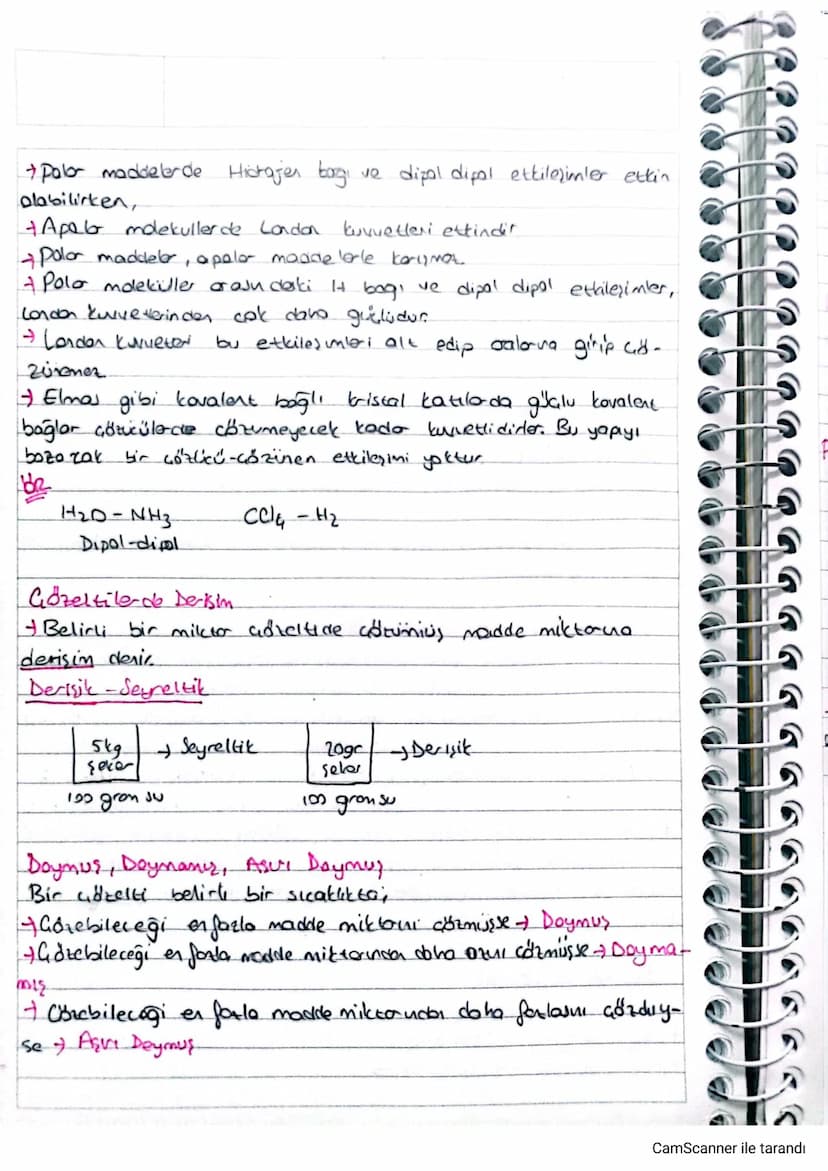 → Polar maddelerde Hidrojen bağı ve dipol dipol etkileşimler etkin
olabilirken,
→ Apolar moleküllerde London kuvvetleri etkindir
→ Polar maddeler, apolar maddelerle karışmaz
→ Polar moleküller arasındaki H bağı ve dipol dipol etkileşimler,
London kuvvetlerinden çok daha güçlüdür.
→ London kuvvetleri bu etkileşimleri alt edip aralarına girip çö-
zünemez
→ Elmas gibi kovalent bağlı kristal katılarda güçlü kovalent
bağlar çözücülerde çözümeyecek kadar kuvvetlidirler. Bu yapıyı
bozarak bir çözücü-çözünen etkileşimi yoktur
Ör
H2O - NH3 CCl4 - H2
Dipol-dipol
Çözeltilerde Derişim
→ Belirli bir miktar çözeltide çözünmüş madde miktarına
derişim denir.
Derişik - Seyreltik
5kg → Seyreltik 20gr → Derişik
şeker şeker
100 gram su 100 gram su
Doymuş, Doymamış, Aşırı Doymuş
Bir çözelti belirli bir sıcaklıkta;
→ Çözebileceği en fazla madde miktarını çözmüşse → Doymuş
→ Çözebileceği en fazla madde miktarından daha azını çözmüşse → Doyma-
mış
→ Çözebileceği en fazla madde miktarından daha fazlasını çözduy-
se → Aşırı Doymuş
CamScanner ile tarandı